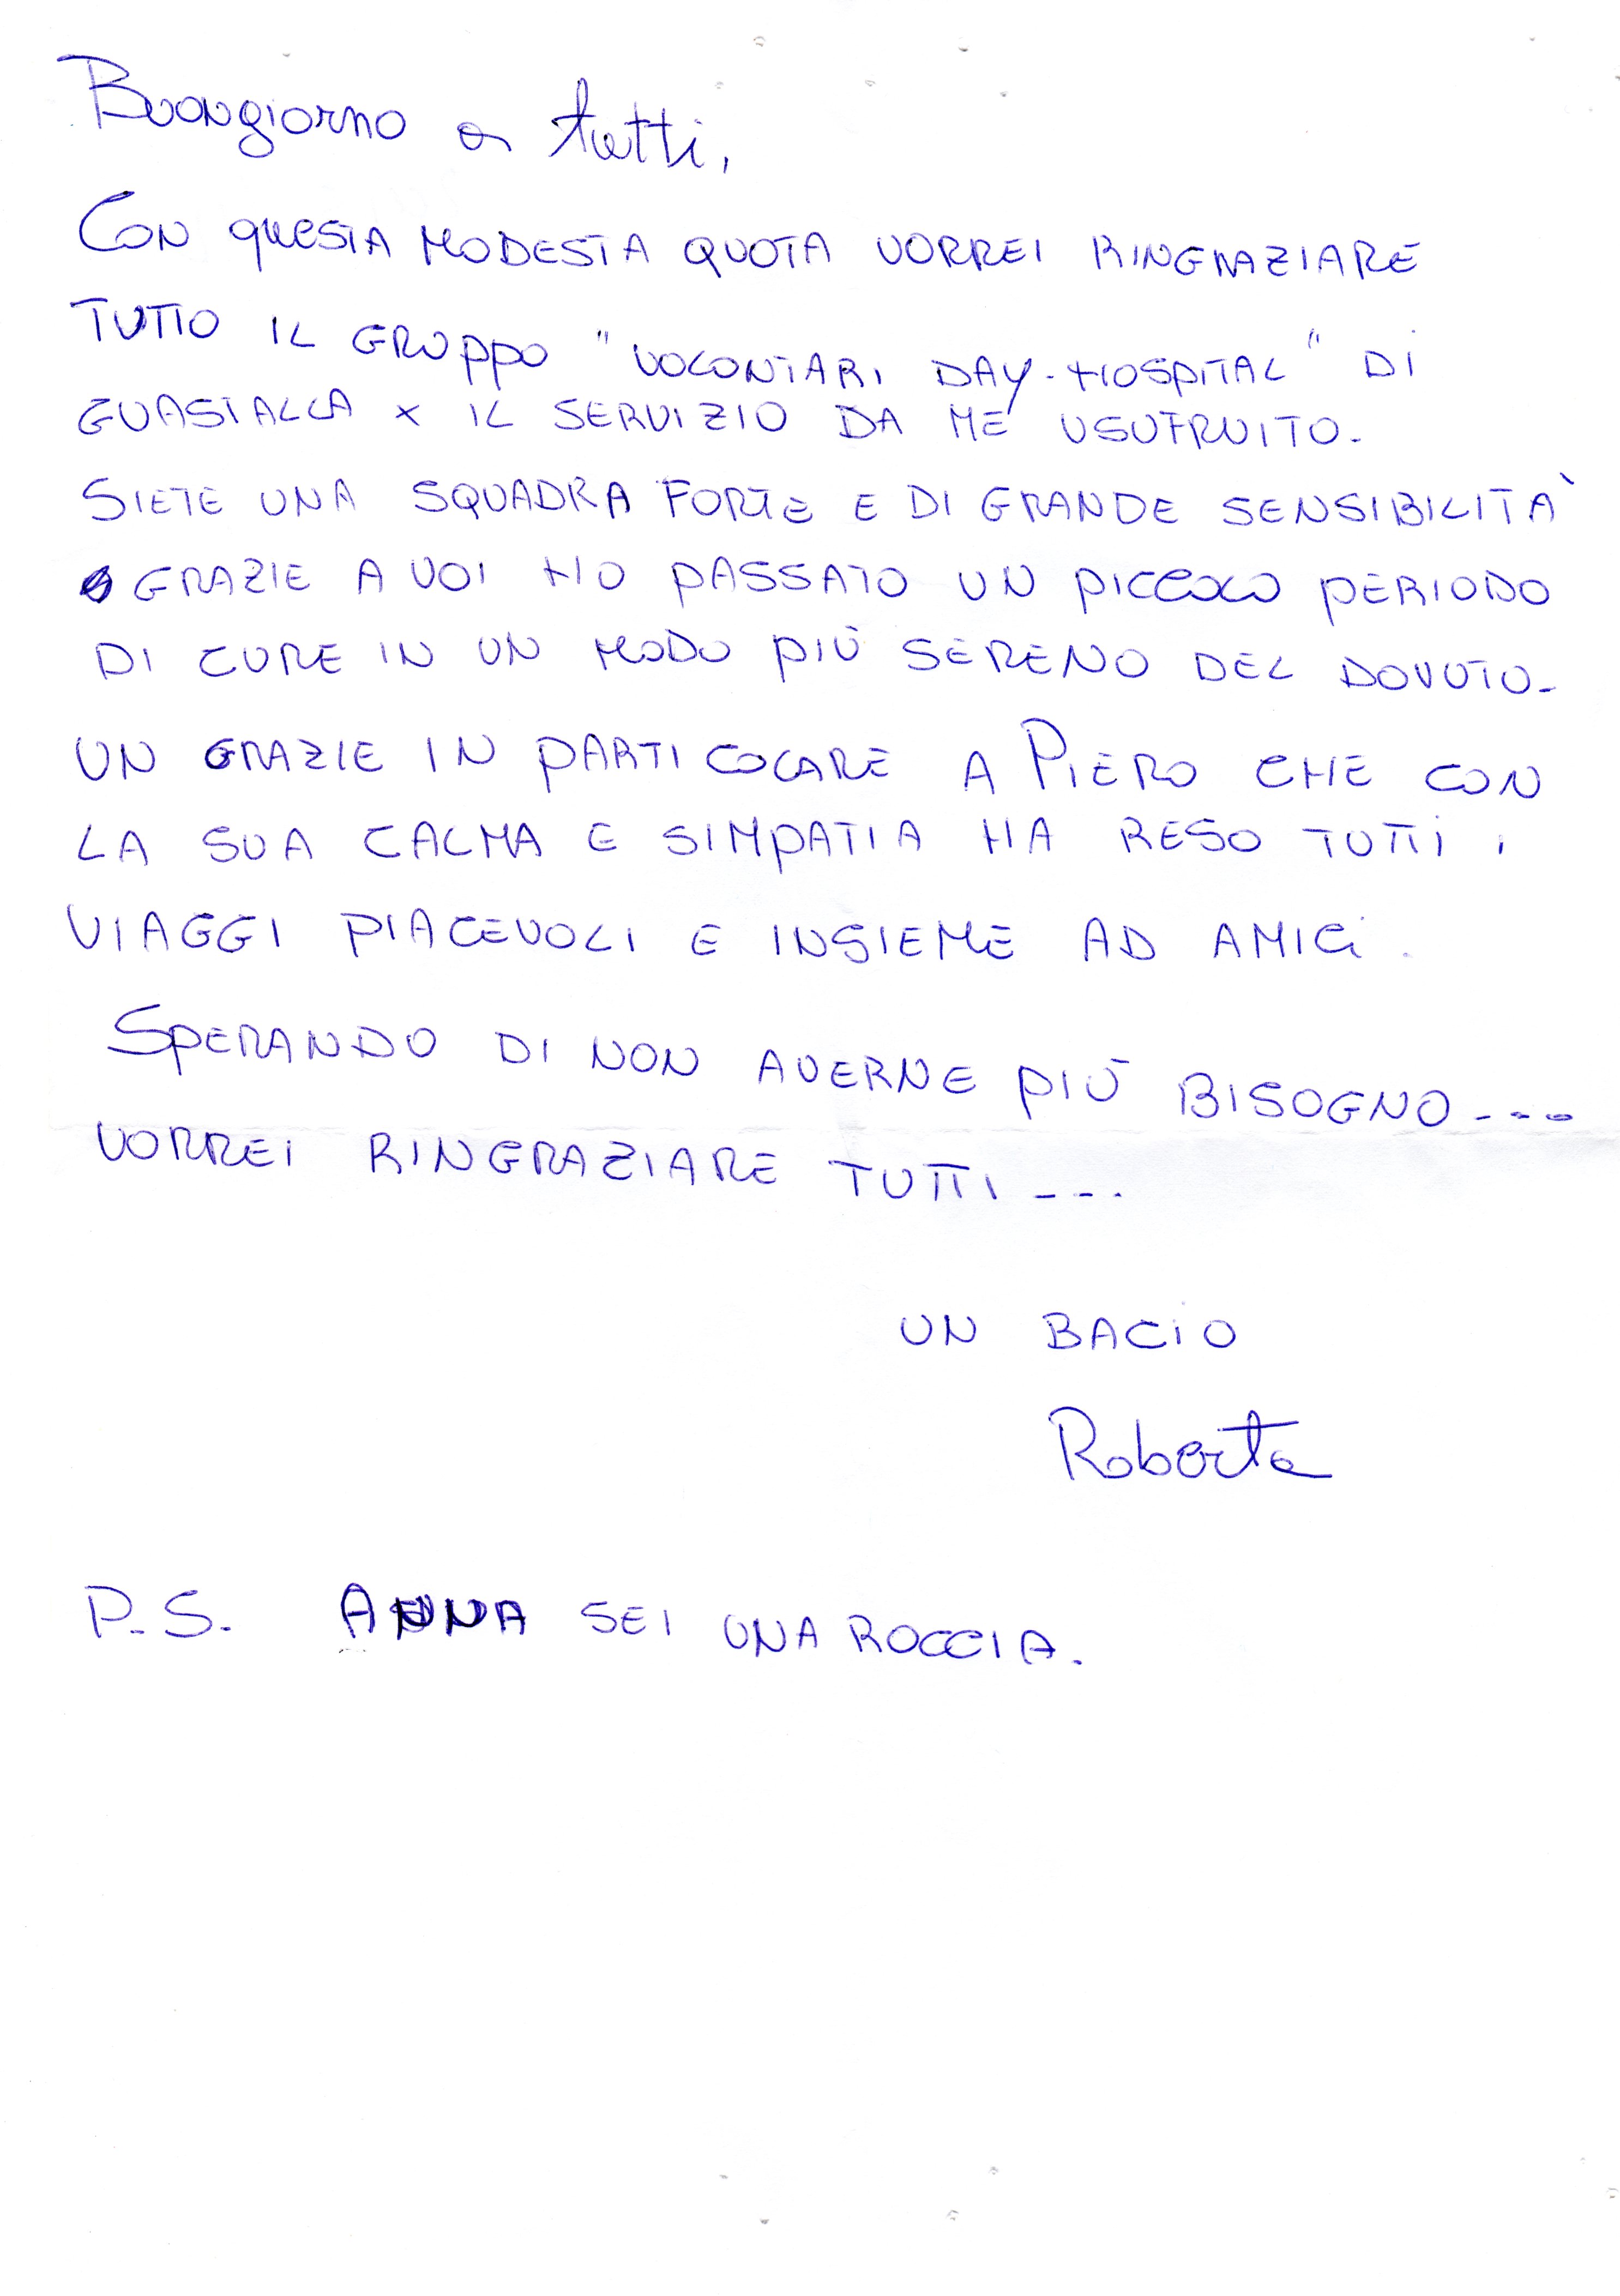 Buongiorno a tutti,
CON QUESTA MODESTA QUOTA VORREI RINGRAZIARE
TUTTO IL GRUPPO "VOLONTARI DAY-HOSPITAL" DI
GUASTALLA x IL SERVIZIO DA ME USUFRUITO.
SIETE UNA SQUADRA FORTE E DI GRANDE SENSIBILITÀ
GRAZIE A VOI HO PASSATO UN PICCOLO PERIODO
DI CURE IN UN MODO PIÙ SERENO DEL DOVUTO-
UN GRAZIE IN PARTICOLARE A PIERO CHE CON
LA SUA CALMA E SIMPATIA HA RESO TUTTI i
VIAGGI PIACEVOLI E INSIEME AD AMICI.
SPERANDO DI NON AVERNE PIÙ BISOGNO----
VORREI RINGRAZIARE TUTTI ---.
UN BACIO
Roberta
P.S. ANNA SEI UNA ROCCIA.